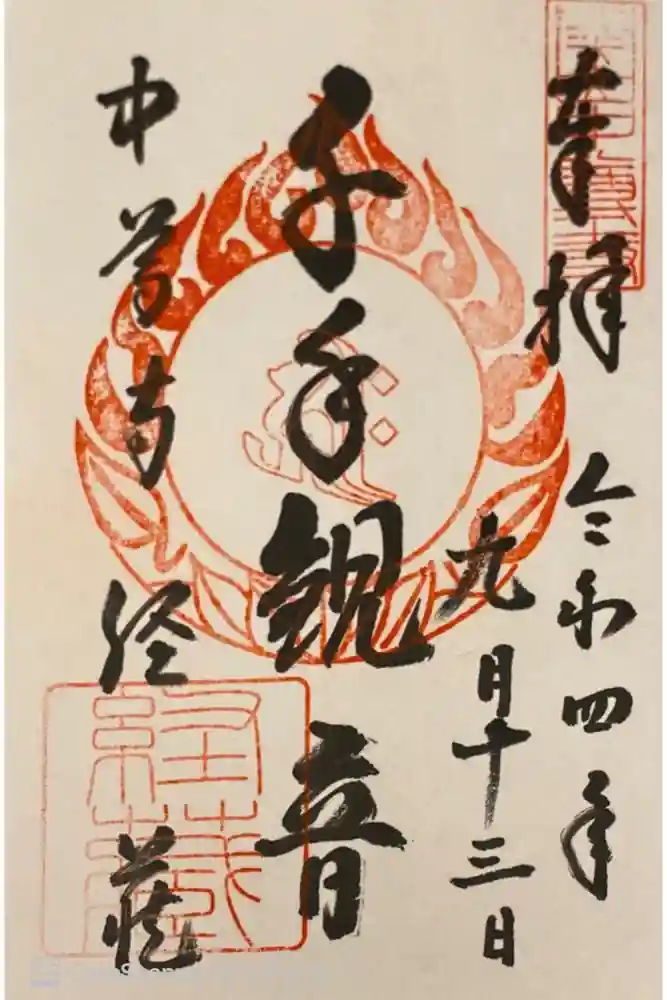 奉拝
令和四年
九月十三日
千手観音
中尊寺
経蔵
經藏